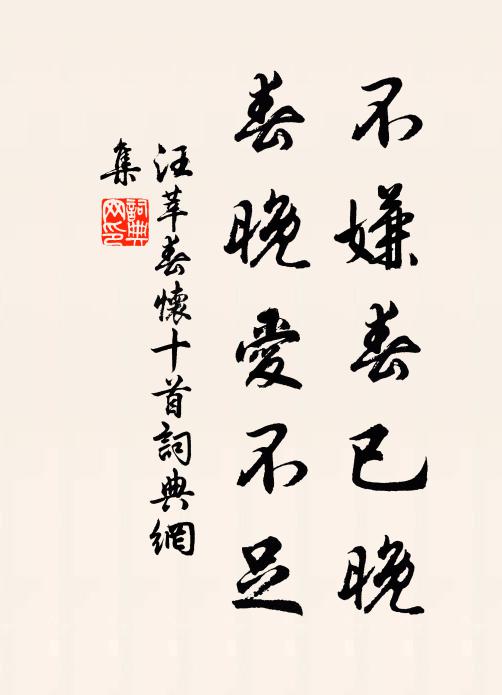 不嫌春已晚
春晚愛不足
汪莘春懷十首詞典網
集
詞典
网印